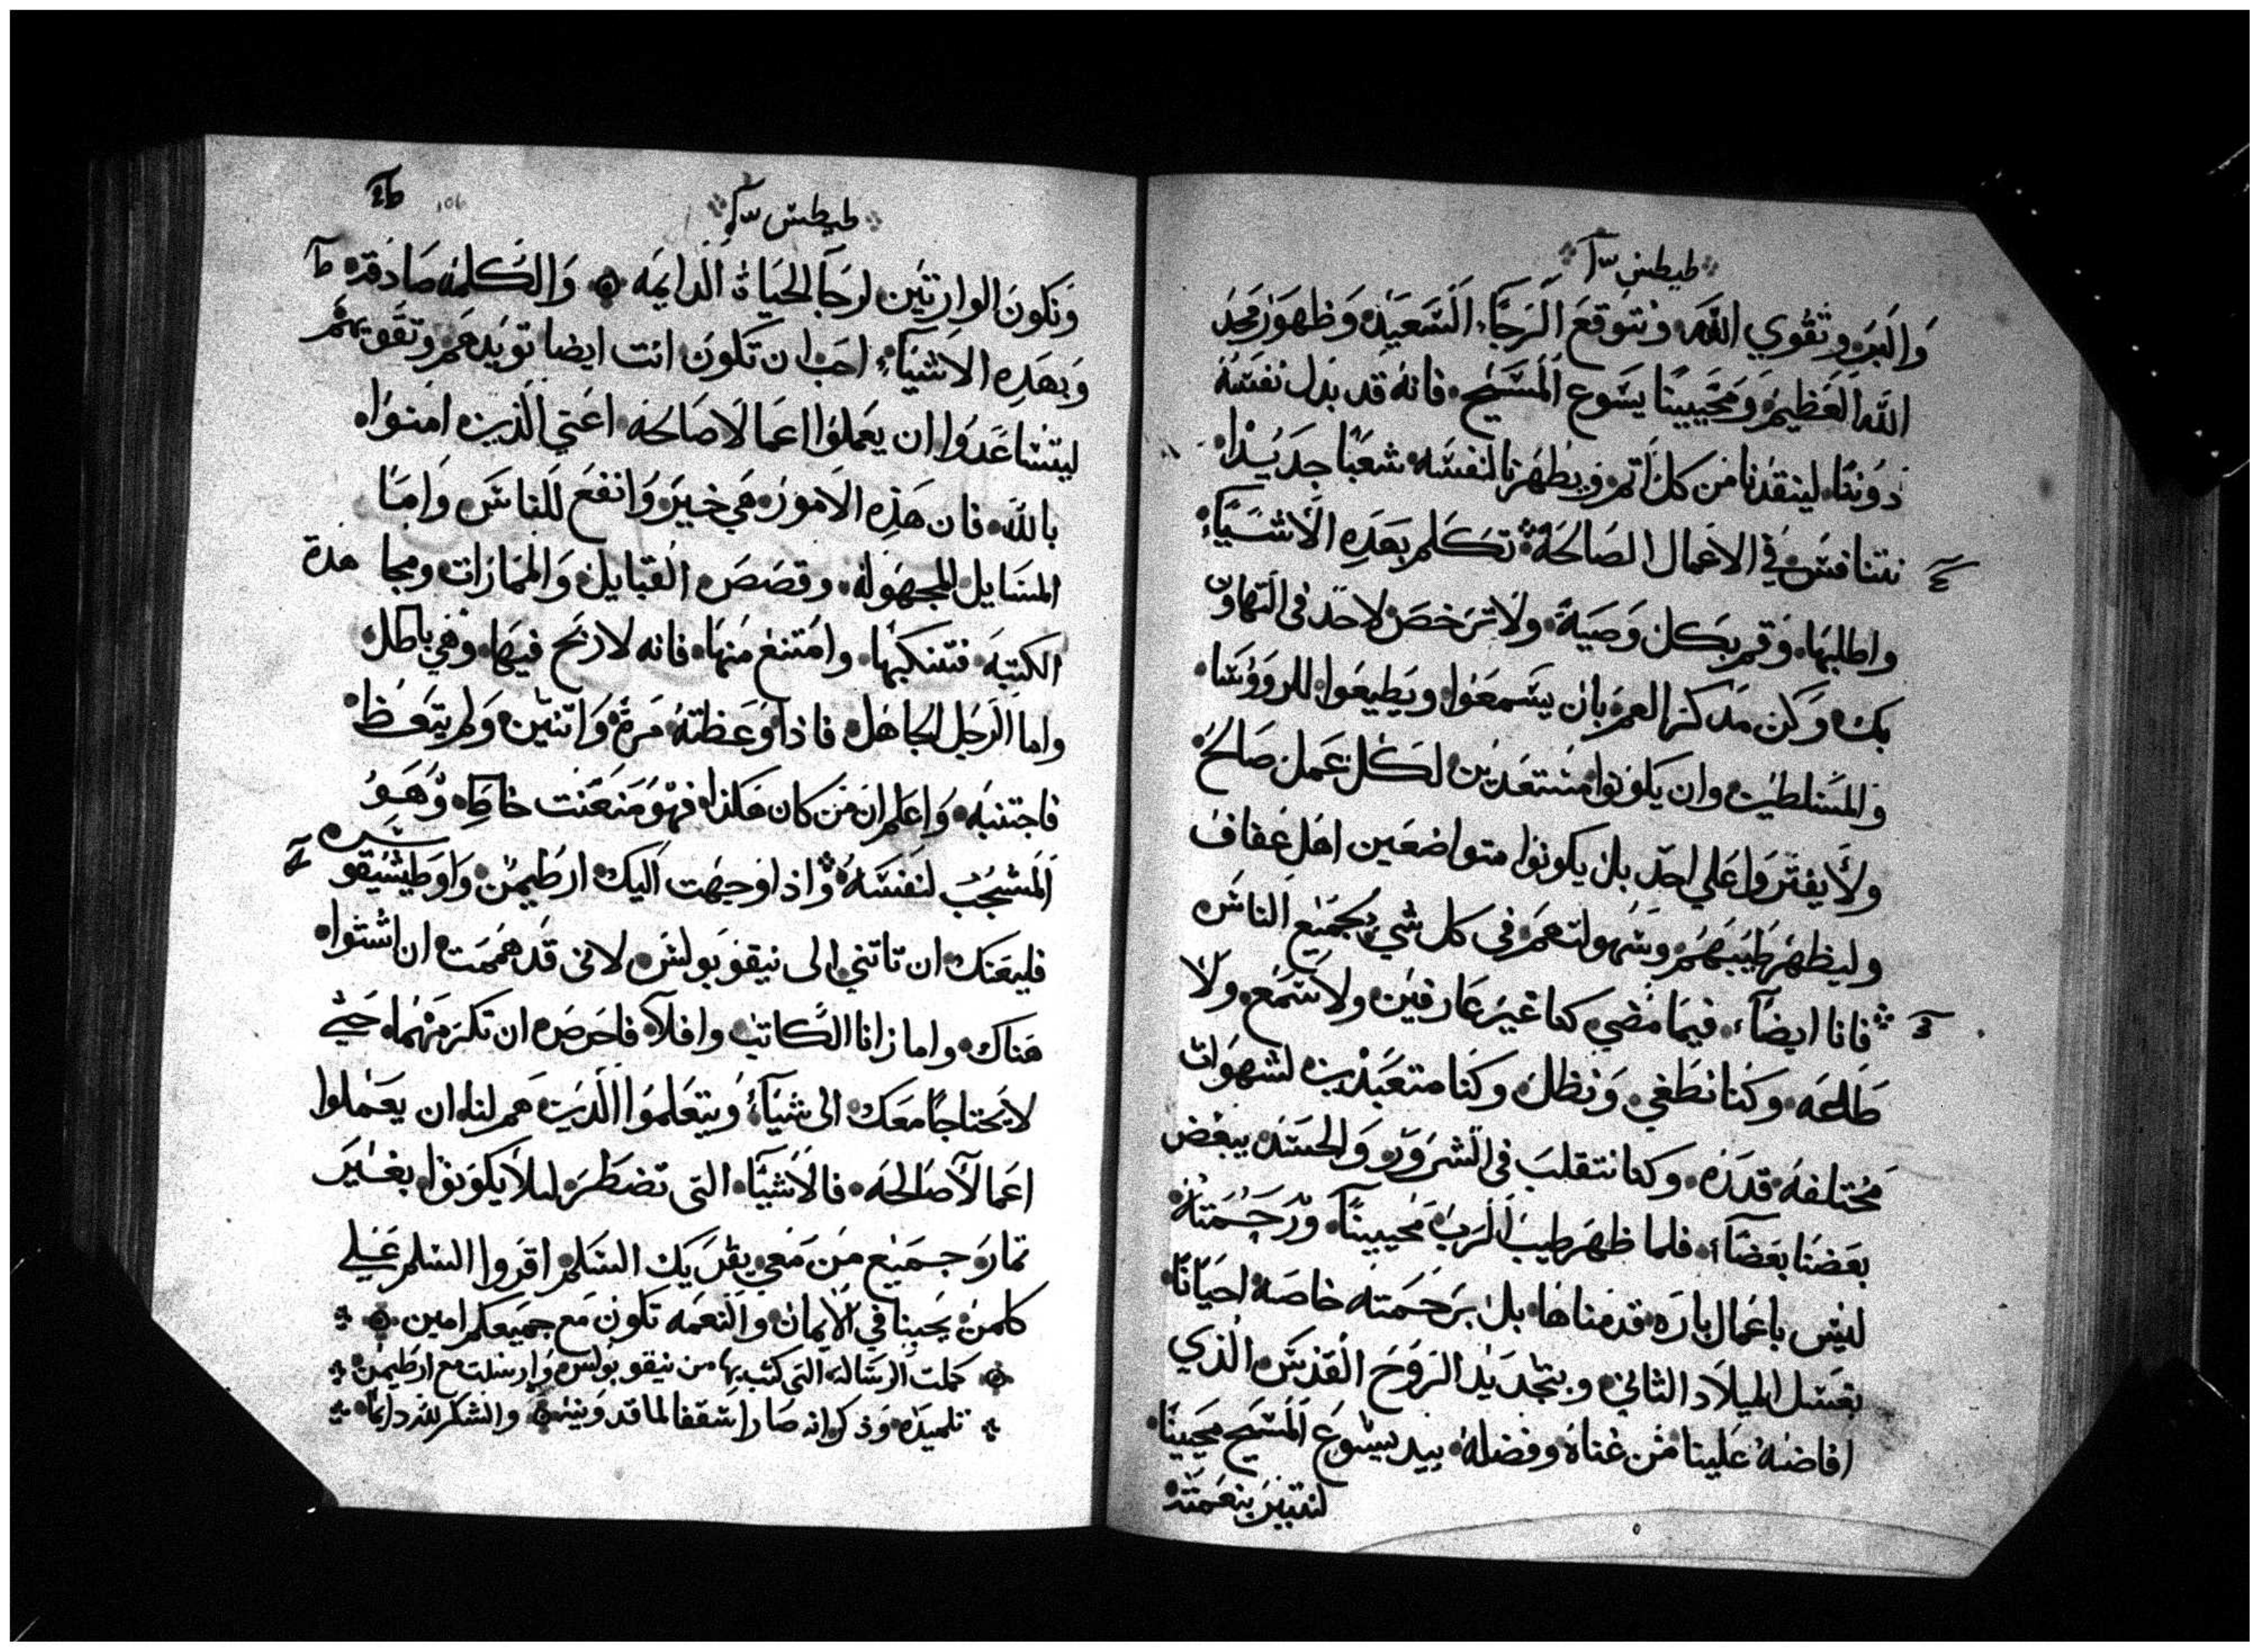 طيطس
وَالبَر وتقوي اللَّه ونتوقع الرَجَّاء السَّعيَدَه وَظهوَر مَجد
اللَّه العَظيم وَمحَييَنا يسَوع المسَّيح فانهُ قد بدل نفسَهُ
دوُننا لينقدنا من كل اتم ويطهرنا لنفسَه شعَبًا جدَيدا
نتنافسَ في الاعمال الصَالحَة تكَلم بهَدِه الاشَيَاء
واطلبهَا وَقم بكل وَصَيَة ولا ترَخصَ لاحد فى التهاون
بك وَكن مدَكرا لهم بان يسَمعَوا ويَطيعَوا للروَؤسَا
وَالمسَلطين وان يكونوا مستعَدين لكل عَمل صَالح
ولا يفتَروا عَلي احد بل يكونوا متواضعَين اهَل عفاف
وليظهَر طيبهَم وسَهولتهَم فى كل شي لجميع الناسَ
فانا ايضًا فيمَا مَضي كنا غير عَارفين ولا سَمع ولا
طَاعَه وكنا نطَغي وَنظل وكنا متعَبدين لشهوات
مَختلفة قدَرَه وكنا نتقلب فى الشرور وَالحسَد يبغض
بعَضنا بعَضًا فلما ظهَر طيب الرَب مَحيينا وَرَحمَتهُ
ليس باعَمال بارَه قدمناهَا بل برَحمَته خاصَة احيَانا
بغسَل الميلاد الثاني وبتجديد الرَوَح القدسَ الذي
افاضهُ عَلينا من غناهُ وفضلهُ بيد يسَوعَ المسَيح محيينا
لنتبرَر بنعَمته
طيطس
وَنكون الوارتين لرجَا الحيَاة الدايمَه وَالكلمَه صَادقه
وَبهَدِه الاشيَاء احَب ان تكون انت ايضا تويدهَم وتقويهَم
ليتسَاعَدوا ان يعَملوا اعَمالا صَالحَه اعَني الذين امنوا
باللَّه فان هَذِه الامور هَي خير وَانفعَ للناسَ وَامَا
المسَايل المجهوله وقصَصَ القبايل وَالممَارات ومجاهدة
الكتبَه فتنكبهَا وامتنعَ منهَا فانه لا ربح فيهَا وهَي باطل
واما الرَجل الجاهَل فاذا وَعَظتهُ مَرة وَاتنتين وَلم يتعَظ
فاجتنبهُ وَاعَلم ان مَن كان هَكذا فهَو مَنعَنت خاطِه وَهَو
المَسَجُب لنفسَهُ وَاذا وَجهَت اليك ارطيمن وَاوَطيشيقوسَ
فليعَنك ان تاتني الى نيقوبولسَ لانى قد همَمَت ان اشتوا
هَناك واما زانا الكاتب وافلا فاحَرصَ ان تكرَمهَما حَتي
لا يحتاجا مَعَك الى شيَأ وَيتعَلموا الذين هَم لنا ان يعَملوا
اعَمالا صَالحَه فالاشيَا التى تضطَر ليلا يكونوا بغيَر
تمار جميع مَن مَعي يقريك السَلم اقروا السَلم عَلي
كلمن يحَبنا في الايمان وَالنعَمه تكون مَع جميَعكم امين
كملت الرسَالة التى كتب بها من نيقوبولسَ وارسَلت مع ارطيمن
تلميذه وَذكر انه صَار اسَقفا لما قد والشكر لله دايمًا